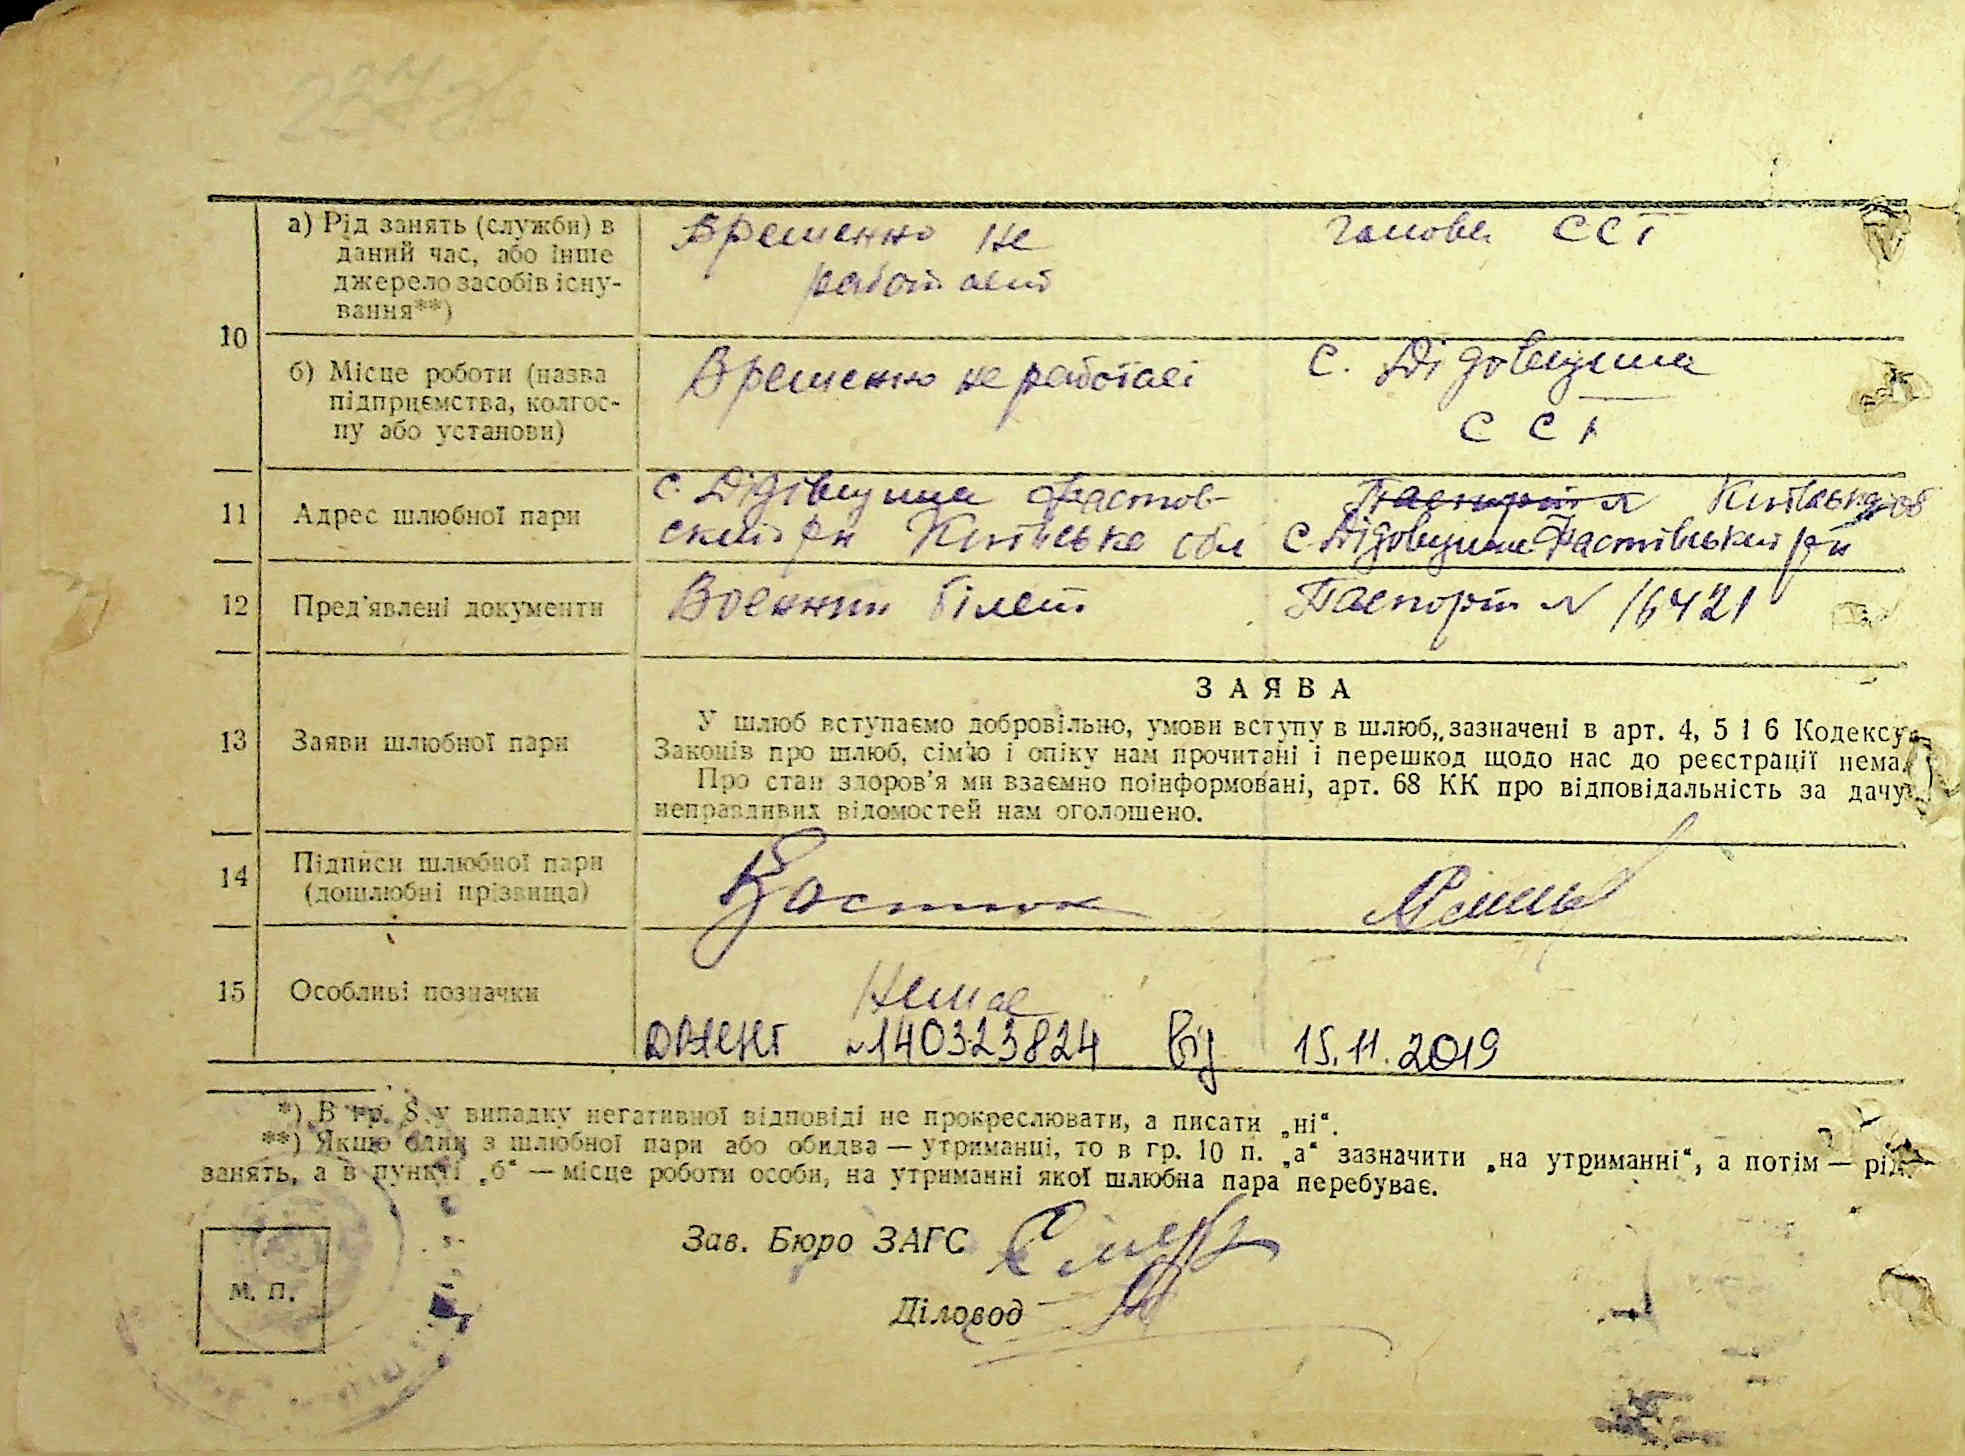 а) Рід занять (служби) в
даний час, або інше
джерело засобів існу-
вання**)
Временно не
работает
голова ССТ
10
б) Місце роботи (назва
підприємства, колгос-
пу або установи)
Временно не работает
с. Дідовщина
ССТ
11
Адрес шлюбної пари
с. Дідівщина Фастов-
ский рн Київське обл
Паспорт № Київська об
с Дідовщина Фастівський рн
12
Пред'явлені документи
Военний білет
Паспорт № 16421
ЗАЯВА
13
Заяви шлюбної пари
У шлюб вступаємо добровільно, умови вступу в шлюб, зазначені в арт. 4, 5 і 6 Кодексу
Законів про шлюб, сім'ю і опіку нам прочитані і перешкод щодо нас до реєстрації нема.
Про стан здоров'я ми взаємно поінформовані, арт. 68 КК про відповідальність за дачу
неправдивих відомостей нам оголошено.
14
Підписи шлюбної пари
(дошлюбні прізвища)
15
Особливі позначки
Немае
№140323824 від 15.11.2019
*) В гр. 8 у випадку негативної відповіді не прокреслювати, а писати „ні“.
**) Якщо один з шлюбної пари або обидва — утриманці, то в гр. 10 п. „а“ зазначити „на утриманні“, а потім — рід
занять, а в пункті „б“ — місце роботи особи, на утриманні якої шлюбна пара перебуває.
Зав. Бюро ЗАГС
М. П.
Діловод